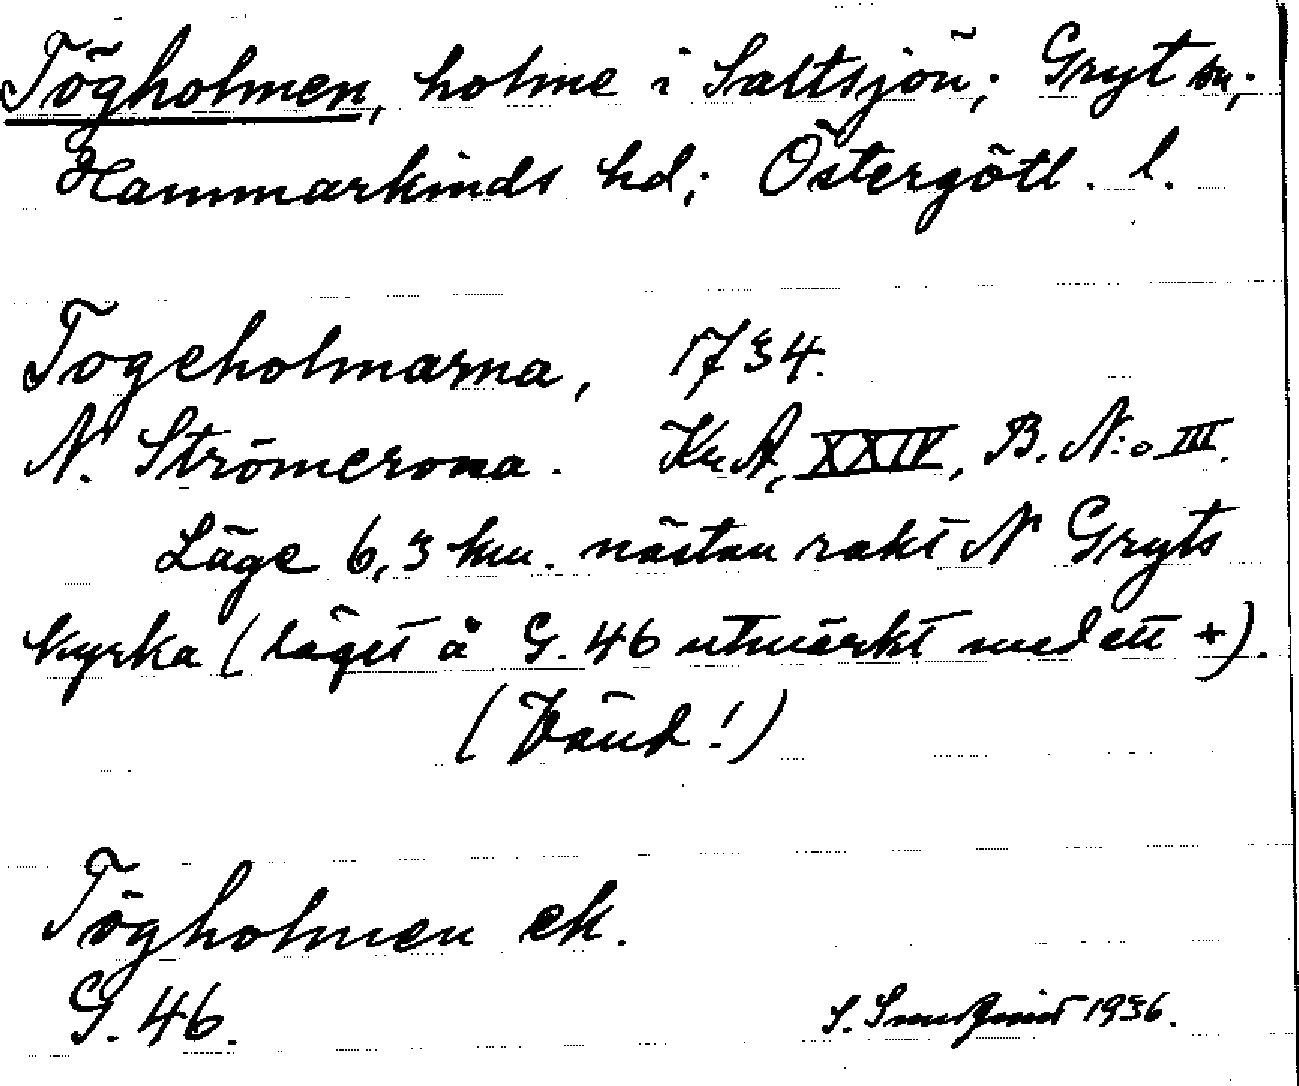 Tögholmen, holme i Saltsjön; Gryt sn;
Hammarkinds hd; Östergötl. l.
Togeholmarna, 1734.
N. Strömerona. Kr. A, XXIV, B. N:o III.
Läge 6,3 km. nästan rakt N Gryts
kyrka (läget å G. 46 utmärkt med ett +).
(Vänd!)
Tögholmen ek.
G. 46.
S. Sundqvist 1936.